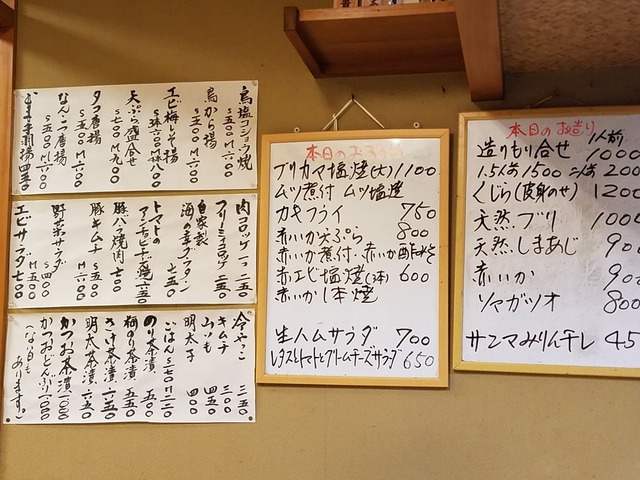 鳥塩コショウ焼
S五〇〇 M六〇〇
鳥から揚
S五〇〇 M六〇〇
エビ梅しそ揚
天ぷら盛合せ
S七〇〇 M九〇〇
タコ唐揚
S五〇〇 M六〇〇
なんこつ唐揚
S五〇〇 M六〇〇
肉コロッケ
二五〇
自家製
海の幸グラタン
トマトの
豚バラ焼肉 七〇〇
豚キムチ
S五〇〇 M六〇〇
野菜サラダ
S四〇〇 M五〇〇
エビサラダ 七〇〇
冷やっこ 三五〇
キムチ 三〇〇
山いも 四五〇
明太子 四〇〇
ごはん S一七〇 M二二〇
のり茶漬 五五〇
梅のり茶漬 五五〇
さけ茶漬 六五〇
明太茶漬 六五〇
かつお茶漬 一〇〇〇
かつおどんぶり 一〇〇〇
(ない日も
あります。)
本日のおすすめ
ブリカマ塩焼(大) 1100
ムツ煮付 ムツ塩焼
カキフライ 750
赤いか天ぷら 800
赤いか煮付・赤いか酢みそ
赤エビ塩焼(2本) 600
赤いか1本焼
生ハムサラダ 700
レタスとトマトとクリームチーズサラダ 650
本日のお造り
1人前
造りもり合せ 1000
1.5人前 1500 二人前 200
くじら(皮身のせ) 1200
天然ブリ 1000
天然しまあじ 90
赤いか 90
ソマガツオ 80
サンマみりん干し 45